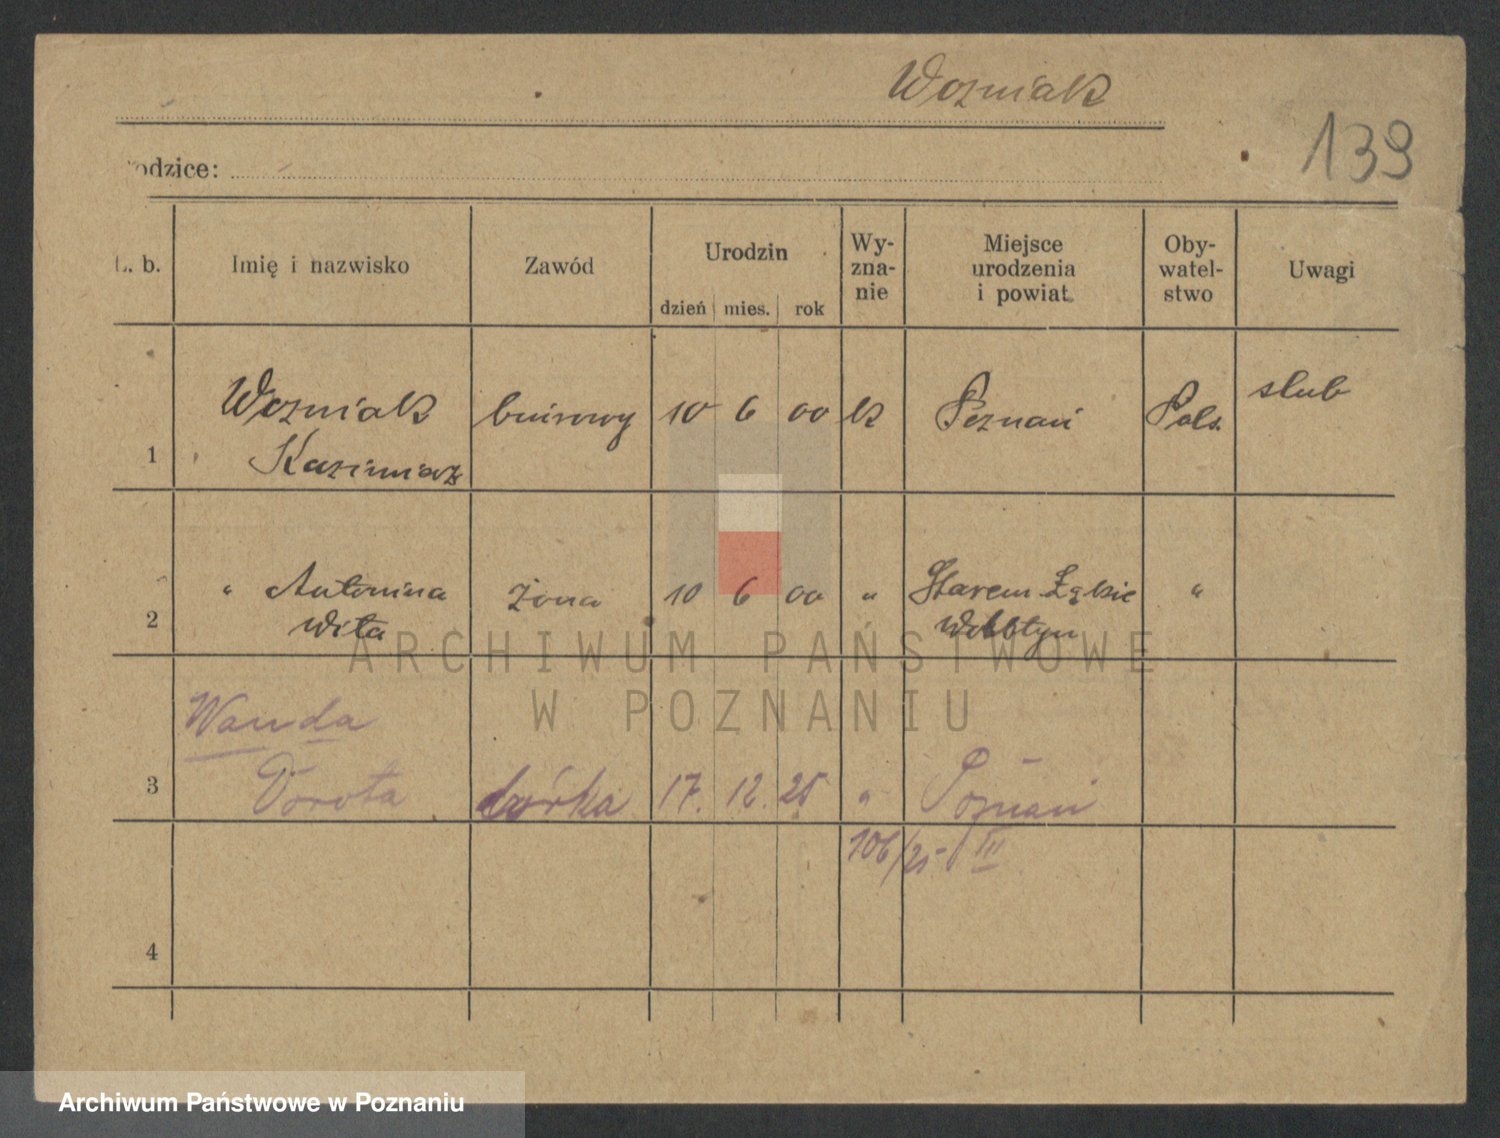 Wozniak
139
odzice:
L. b. Imię i nazwisko Zawód Urodzin dzień mies. rok Wy-zna-nie Miejsce urodzenia i powiat. Oby-watel-stwo Uwagi
1 Wozniak Kazimiarz biurowy 10 6 00 k Poznań Pols. slub
2 " Antonina żona 10 6 00 " Starem
Wita
ARCHIWUM PAŃSTWOWE
W POZNANIU
3 Wanda Dorota córka 17. 12. 25 " Poznań
106/25 III
4
Archiwum Państwowe w Poznaniu